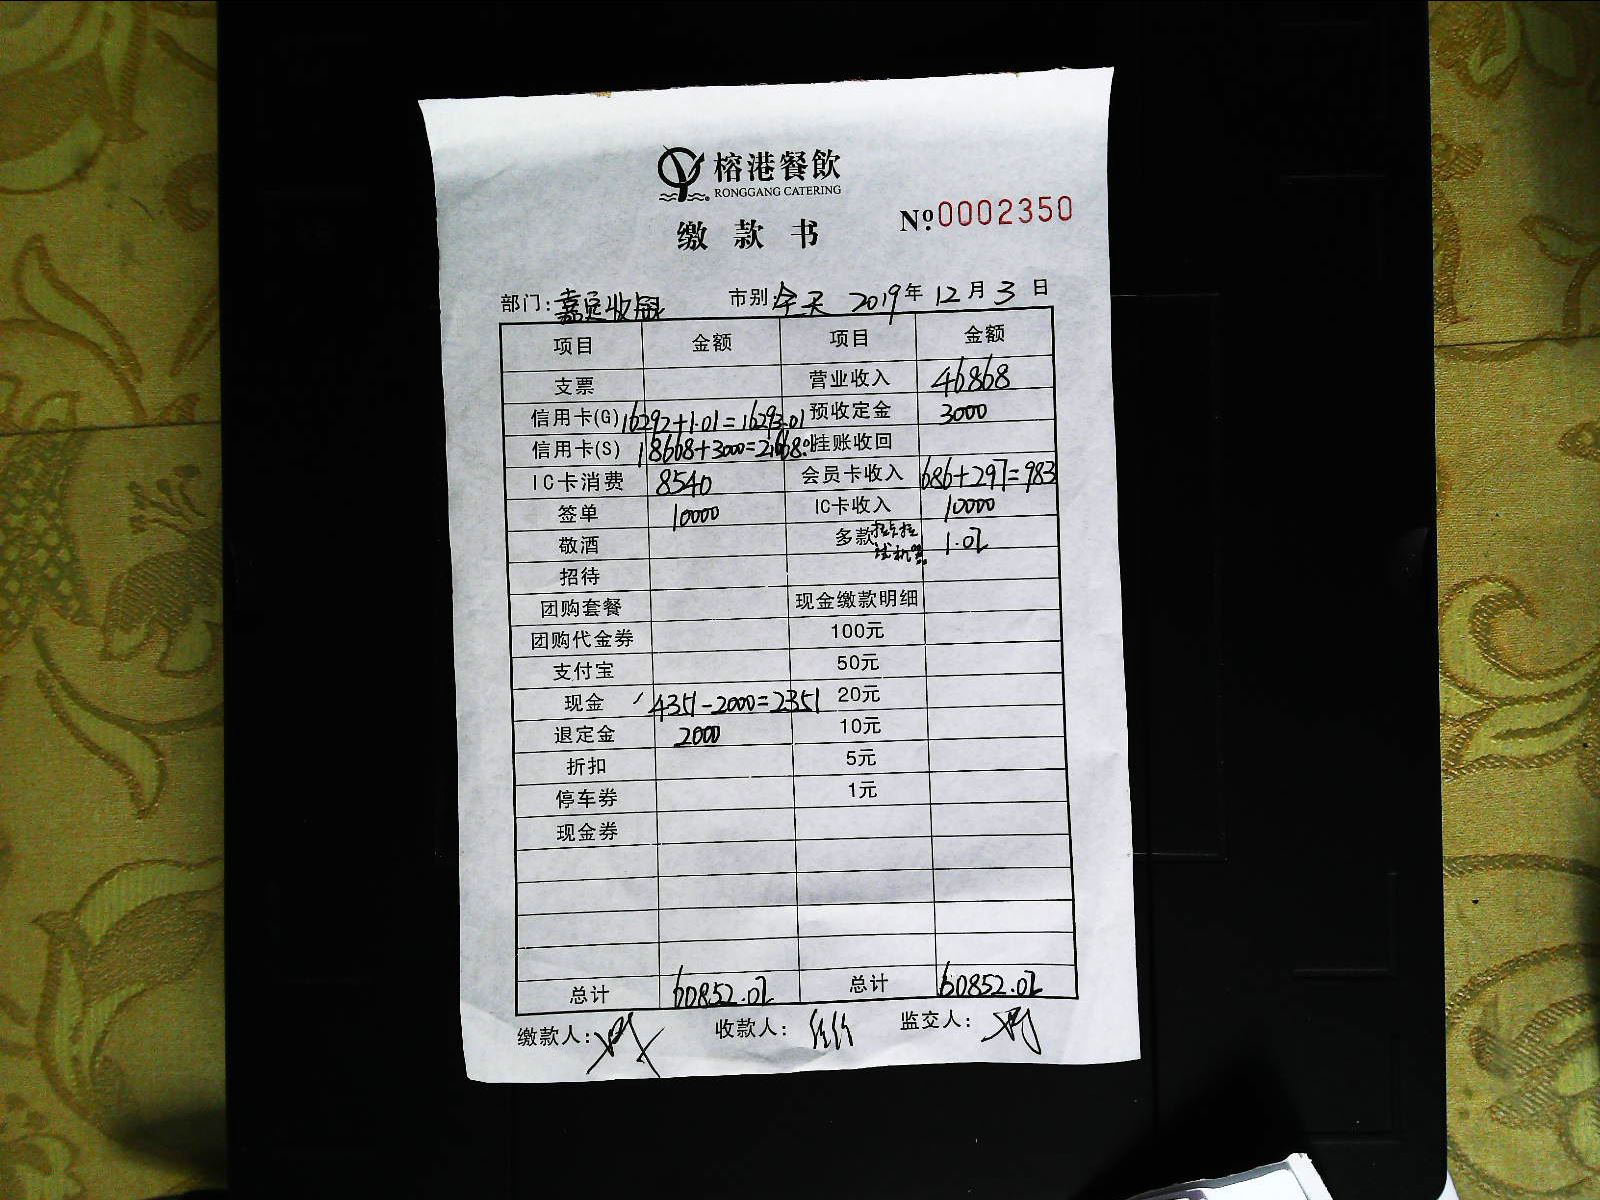 榕港餐飲
RONGGANG CATERING
缴款书
№:0002350
部门:嘉定收银 市别:全天 2019年12月3日
项目 金额 项目 金额
支票 营业收入 46868
信用卡(G) 16292+1.01=16293.01 预收定金 3000
信用卡(S) 18668+3000=21668.01 挂账收回
IC卡消费 8540 会员卡收入 686+297=983
签单 10000 IC卡收入 10000
敬酒 多款 拉卡拉试机 1.02
招待
团购套餐 现金缴款明细
团购代金券 100元
支付宝 50元
现金 4351-2000=2351 20元
退定金 2000 10元
折扣 5元
停车券 1元
现金券
总计 60852.02 总计 60852.02
缴款人: 收款人: 监交人: